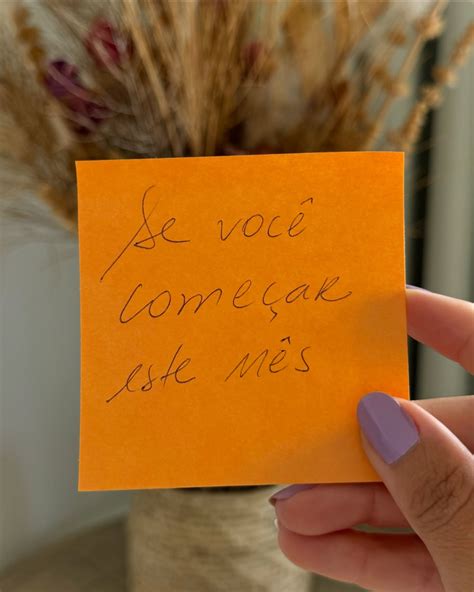 Se você
começar
este mês